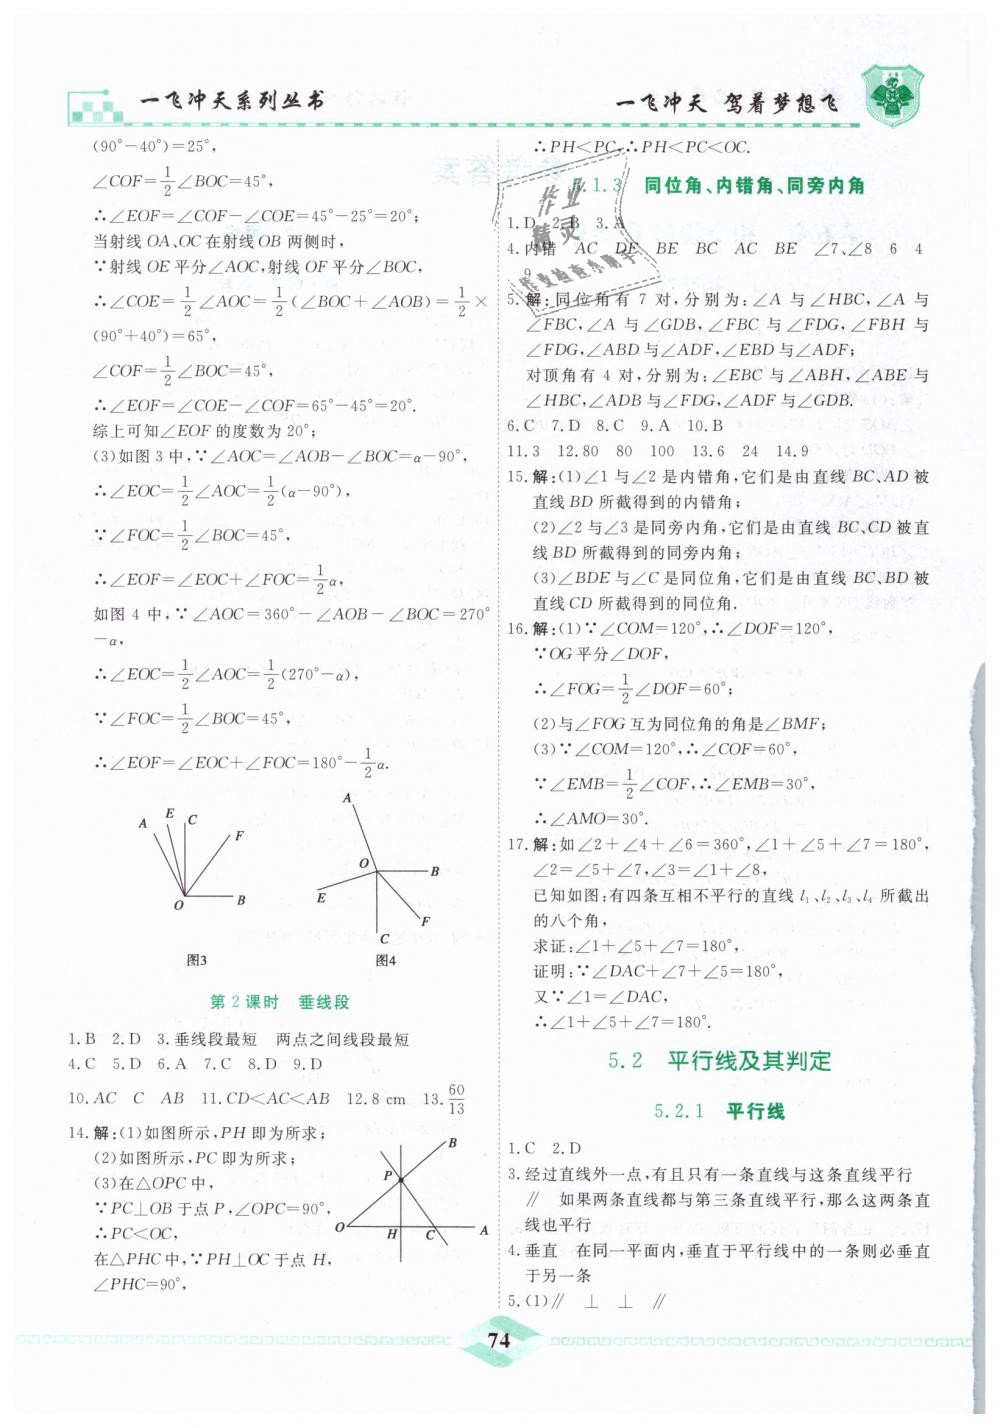 一飞冲天系列丛书
一飞冲天 驾着梦想飞
(90°-40°)=25°,
∠COF=1/2∠BOC=45°,
∴∠EOF=∠COF-∠COE=45°-25°=20°;
当射线 OA、OC 在射线 OB 两侧时,
∵射线 OE 平分∠AOC,射线 OF 平分∠BOC,
∴∠COE=1/2∠AOC=1/2(∠BOC+∠AOB)=1/2×
(90°+40°)=65°,
∠COF=1/2∠BOC=45°,
∴∠EOF=∠COE-∠COF=65°-45°=20°.
综上可知∠EOF 的度数为 20°;
(3)如图 3 中,∵∠AOC=∠AOB-∠BOC=α-90°,
∴∠EOC=1/2∠AOC=1/2(α-90°),
∵∠FOC=1/2∠BOC=45°,
∴∠EOF=∠EOC+∠FOC=1/2α,
如图 4 中,∵∠AOC=360°-∠AOB-∠BOC=270°
-α,
∴∠EOC=1/2∠AOC=1/2(270°-α),
∵∠FOC=1/2∠BOC=45°,
∴∠EOF=∠EOC+∠FOC=180°-1/2α.
A E C F O B
图3
A O B E F C
图4
第 2 课时 垂线段
1.B 2.D 3.垂线段最短 两点之间线段最短
4.C 5.D 6.A 7.C 8.D 9.D
10.AC C AB 11.CD<AC<AB 12.8 cm 13.60/13
14.解:(1)如图所示,PH 即为所求;
(2)如图所示,PC 即为所求;
(3)在△OPC 中,
∵PC⊥OB 于点 P,∠OPC=90°,
∴PC<OC,
在△PHC 中,∵PH⊥OC 于点 H,
∠PHC=90°,
B P O H C A
∴PH<PC,∴PH<PC<OC.
5.1.3 同位角、内错角、同旁内角
1.D 2.B 3.A
4.内错 AC DE BE BC AC BE ∠7、∠8 6 4
9
5.解:同位角有 7 对,分别为:∠A 与∠HBC,∠A 与
∠FBC,∠A 与∠GDB,∠FBC 与∠FDG,∠FBH 与
∠FDG,∠ABD 与∠ADF,∠EBD 与∠ADF;
对顶角有 4 对,分别为:∠EBC 与∠ABH,∠ABE 与
∠HBC,∠ADB 与∠FDG,∠ADF 与∠GDB.
6.C 7.D 8.C 9.A 10.B
11.3 12.80 80 100 13.6 24 14.9
15.解:(1)∠1 与∠2 是内错角,它们是由直线 BC、AD 被
直线 BD 所截得到的内错角;
(2)∠2 与∠3 是同旁内角,它们是由直线 BC、CD 被直
线 BD 所截得到的同旁内角;
(3)∠BDE 与∠C 是同位角,它们是由直线 BC、BD 被
直线 CD 所截得到的同位角.
16.解:(1)∵∠COM=120°,∴∠DOF=120°,
∵OG 平分∠DOF,
∴∠FOG=1/2∠DOF=60°;
(2)与∠FOG 互为同位角的角是∠BMF;
(3)∵∠COM=120°,∴∠COF=60°,
∵∠EMB=1/2∠COF,∴∠EMB=30°,
∴∠AMO=30°.
17.解:如∠2+∠4+∠6=360°,∠1+∠5+∠7=180°,
∠2=∠5+∠7,∠3=∠1+∠8,
已知如图:有四条互相不平行的直线 l₁、l₂、l₃、l₄ 所截出
的八个角,
求证:∠1+∠5+∠7=180°,
证明:∵∠DAC+∠7+∠5=180°,
又∵∠1=∠DAC,
∴∠1+∠5+∠7=180°.
5.2 平行线及其判定
5.2.1 平行线
1.C 2.D
3.经过直线外一点,有且只有一条直线与这条直线平行
∥ 如果两条直线都与第三条直线平行,那么这两条直
线也平行
4.垂直 在同一平面内,垂直于平行线中的一条则必垂直
于另一条
5.(1)∥ ⊥ ⊥ ∥
作业
精灵
作业检查小助手
74